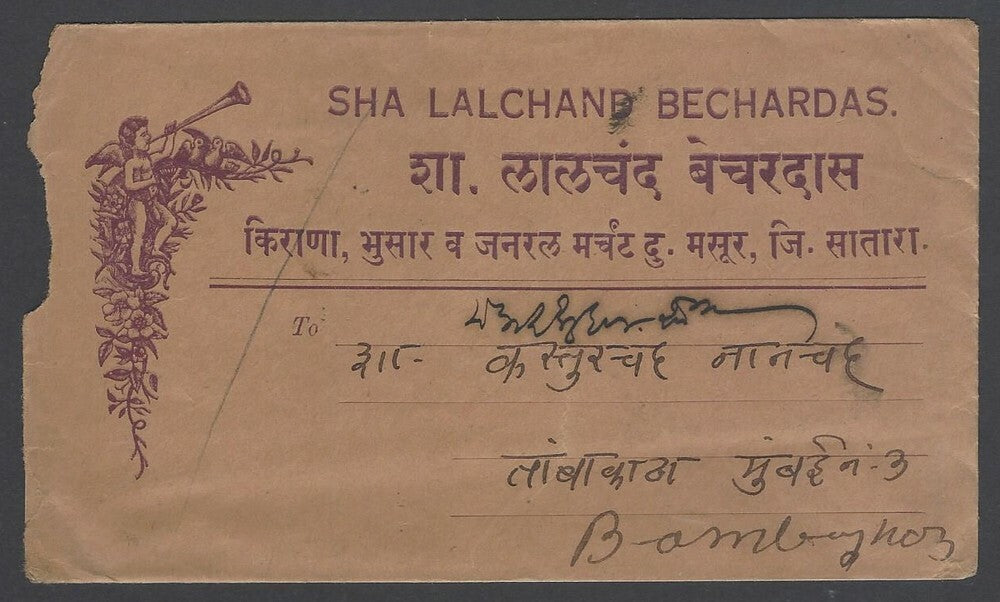 SHA LALCHAND BECHARDAS.
शा. लालचंद बेचरदास
किराणा, भुसार व जनरल मर्चंट दु. मसूर, जि. सातारा.
To
शा- कस्तुरचंद नानचंद
तांबाकाटा मुंबई नं. 3
Bombay no 3